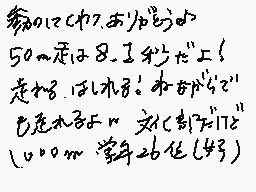 参加してくれて、ありがとうよ
50m走は8.1秒だよ！
走れる、はしれる！ねながらで
も走れるよ〃 文化部だけど
1000m 学年26位（女子）